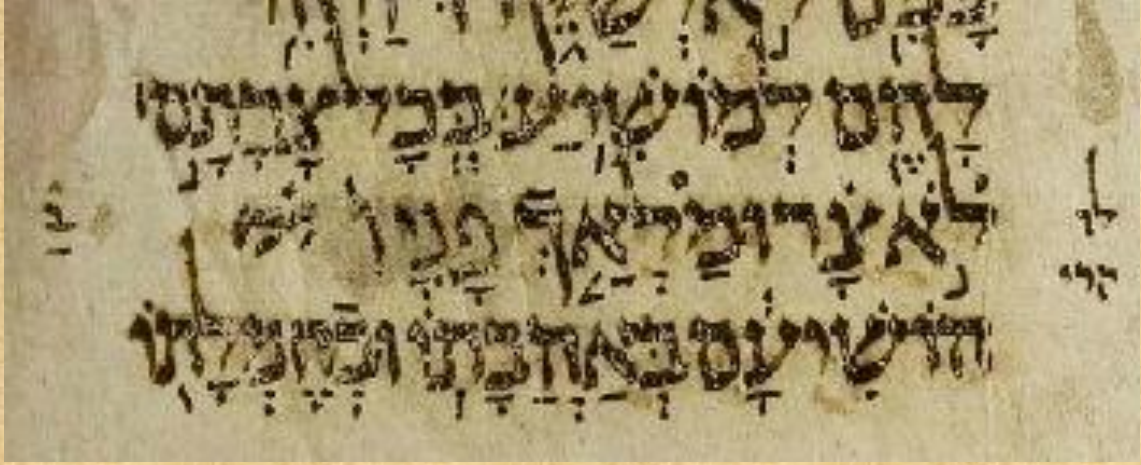 לָהֶם לְמוֹשִׁיעַ בְּכָל צָרָתָם
לֹא צָר וּמַלְאַךְ פָּנָיו
הוֹשִׁיעָם בְּאַהֲבָתוֹ וּבְחֶמְלָתוֹ
לו
קרי